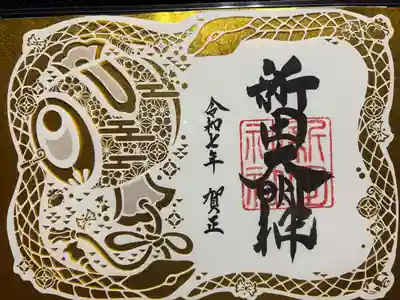 新田大明神
令和七年 賀正